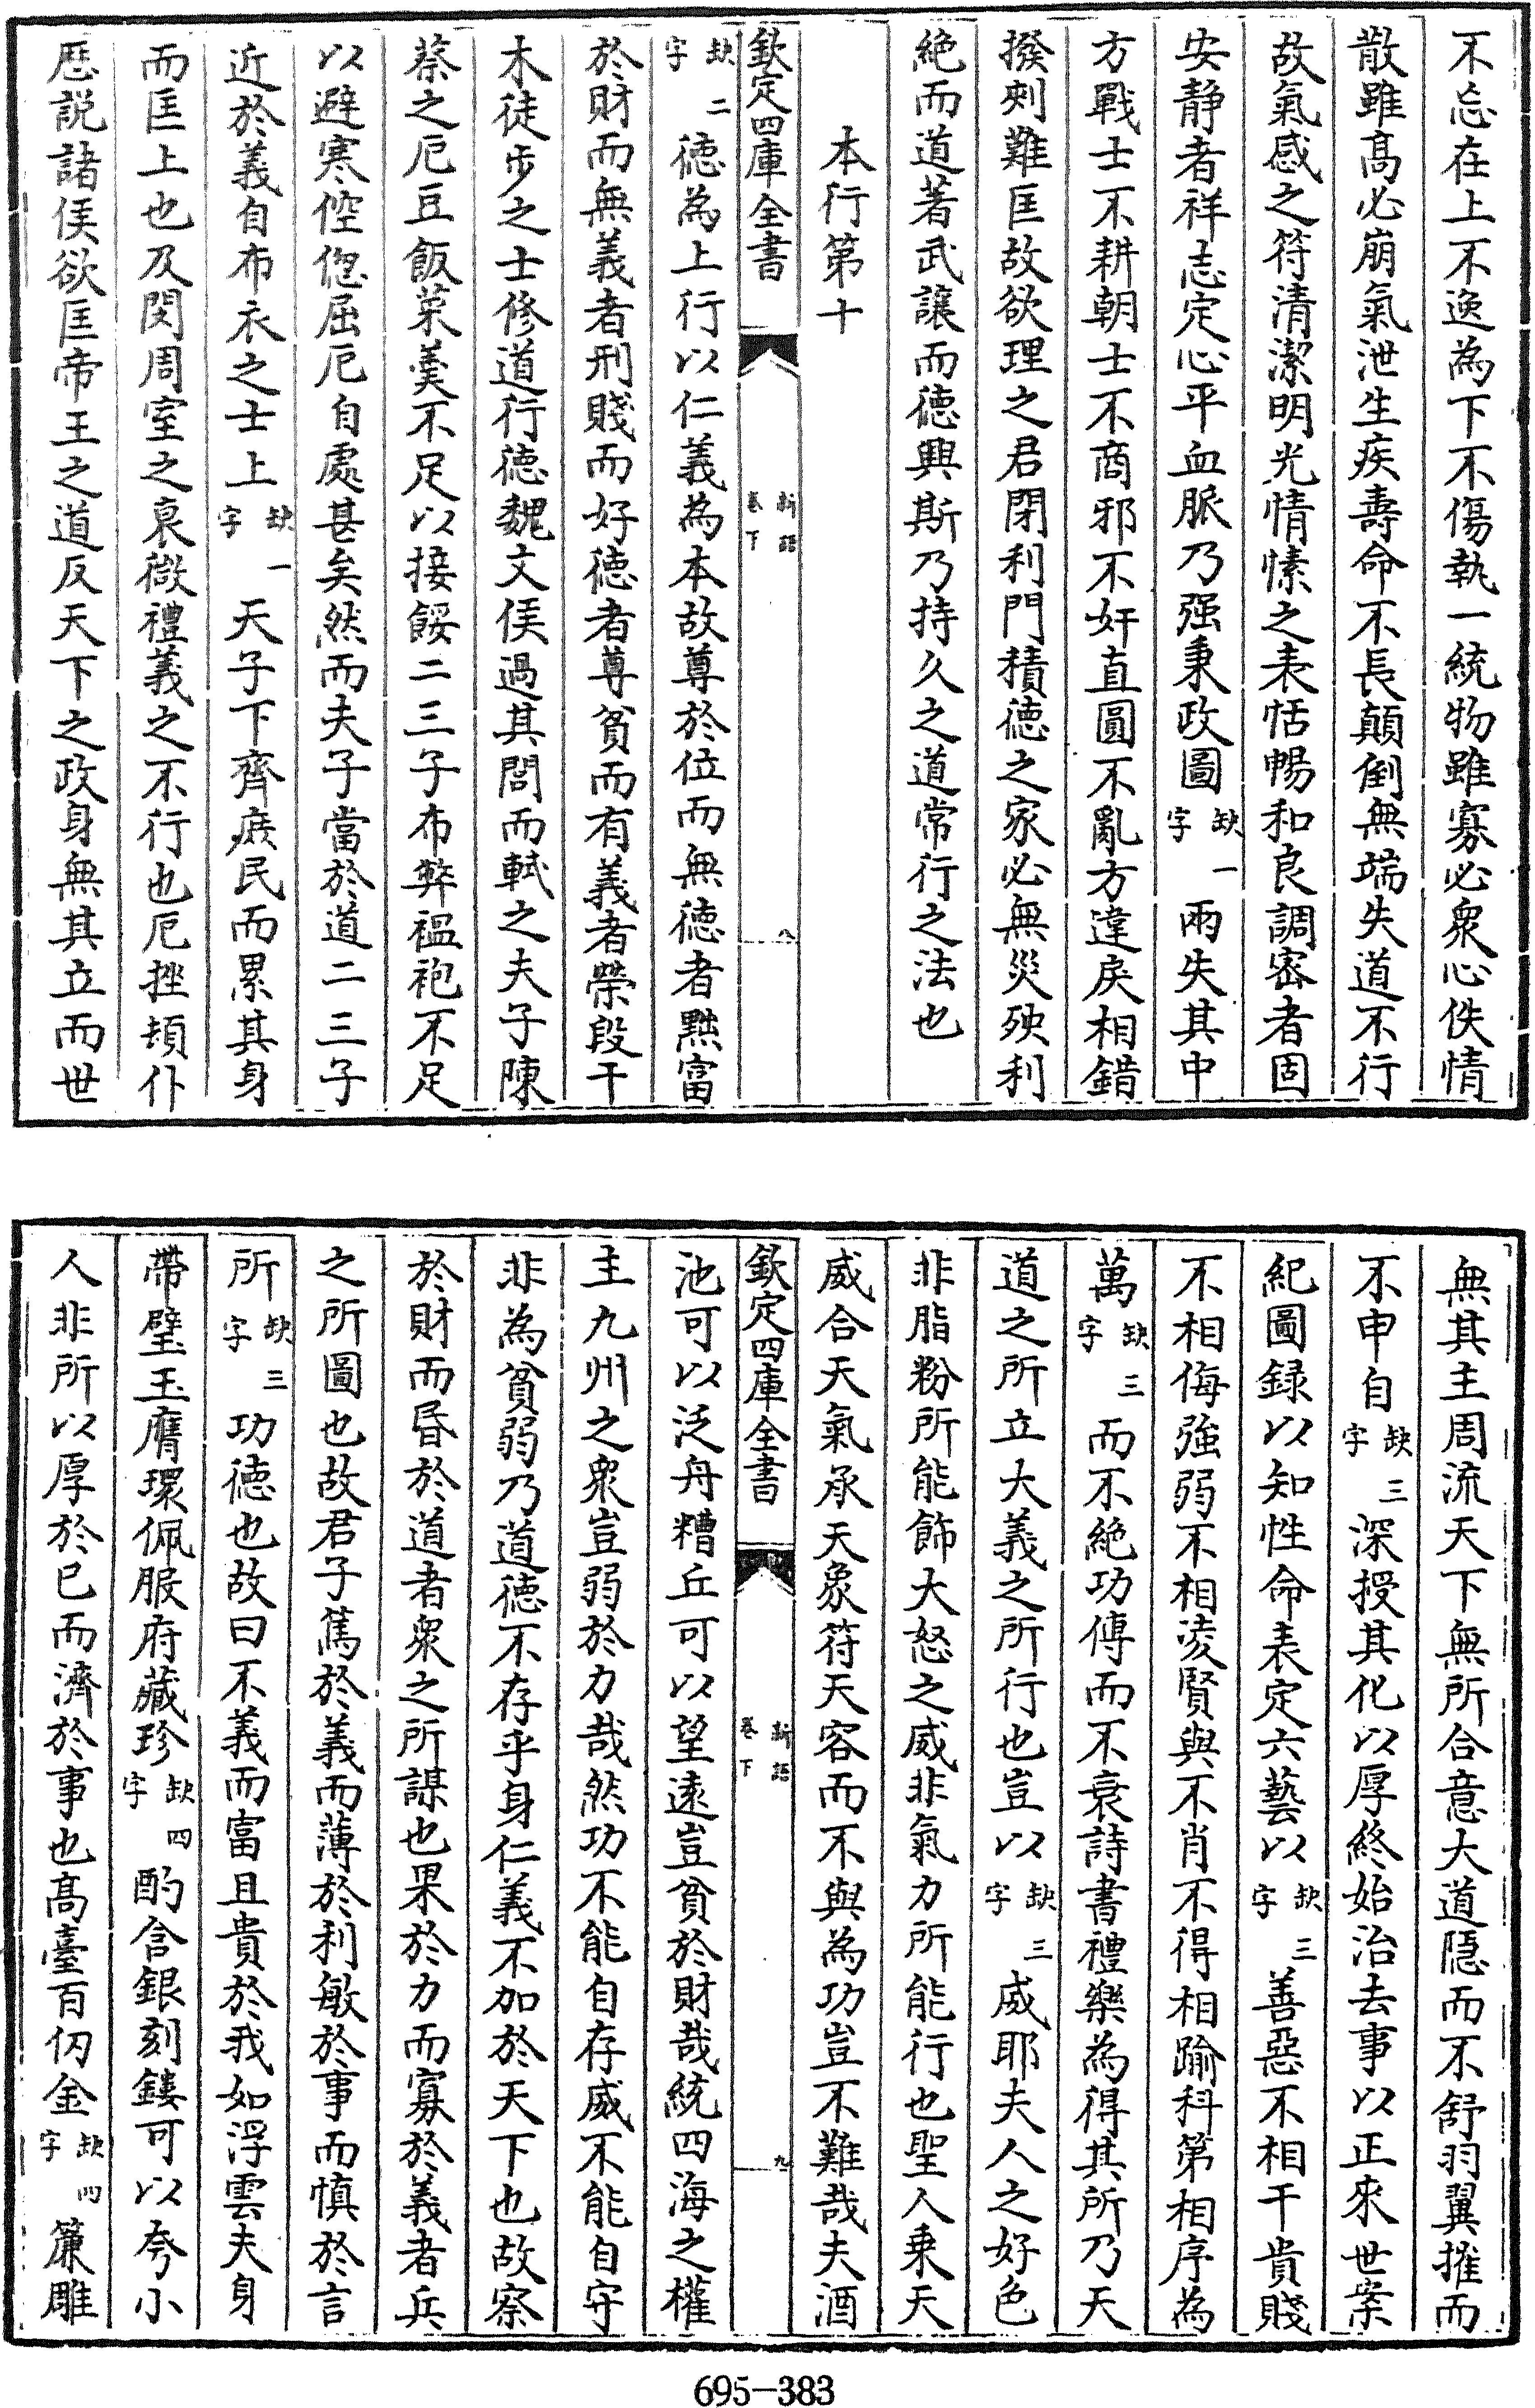 不忘在上不逸為下不傷執一統物雖寡必衆心佚情
散雖高必崩氣泄生疾壽命不長顛倒無端失道不行
故氣感之符清潔明光情愫之表恬暢和良調密者固
安静者祥志定心平血脈乃强秉政圖缺一字兩失其中
方戰士不耕朝士不商邪不奸直圓不亂方違戾相錯
撥剌難匡故欲理之君閉利門積徳之家必無災殃利
絶而道著武讓而徳興斯乃持久之道常行之法也
本行第十
欽定四庫全書 新語 卷下 八
缺二字徳為上行以仁義為本故尊於位而無徳者黜富
於財而無義者刑賤而好徳者尊貧而有義者榮段干
木徒步之士修道行徳魏文侯過其閭而軾之夫子陳
蔡之厄豆飯菜羹不足以接餒二三子布弊褞袍不足
以避寒倥偬屈厄自處甚矣然而夫子當於道二三子
近於義自布衣之士上缺一字天子下齊庻民而累其身
而匡上也及閔周室之衰微禮義之不行也厄挫頓仆
歴説諸侯欲匡帝王之道反天下之政身無其立而世
無其主周流天下無所合意大道隠而不舒羽翼摧而
不申自缺三字深授其化以厚終始治去事以正來世案
紀圖録以知性命表定六藝以缺三字善惡不相干貴賤
不相侮強弱不相凌賢與不肖不得相踰科第相序為
萬缺三字而不絶功傳而不衰詩書禮樂為得其所乃天
道之所立大義之所行也豈以缺三字威耶夫人之好色
非脂粉所能飾大怒之威非氣力所能行也聖人乗天
威合天氣承天象符天容而不與為功豈不難哉夫酒
欽定四庫全書 新語 卷下 九
池可以泛舟糟丘可以望逺豈貧於財哉統四海之權
主九州之衆豈弱於力哉然功不能自存威不能自守
非為貧弱乃道徳不存乎身仁義不加於天下也故察
於財而昏於道者衆之所謀也果於力而寡於義者兵
之所圖也故君子篤於義而薄於利敏於事而慎於言
所缺三字功徳也故曰不義而富且貴於我如浮雲夫身
帶璧玉膺環佩服府藏珍缺四字酌含銀刻鏤可以夸小
人非所以厚於已而濟於事也髙臺百仞金缺四字簾雕
695-383